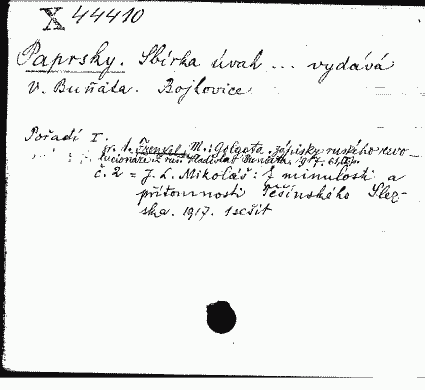 X 44410
Paprsky. Sbírka úvah ... vydává
V. Buňata. Bojkovice
Pořadí I.
č. 1. Frenkel, M.: Golgota. zápisky ruského revo
lucionáře. Z rus. Vladislav Buňata. 1917.
č. 2 = J. L. Mikoláš: Z minulosti a
přítomnosti Těšínského Slez-
ska. 1917. 1 sešit